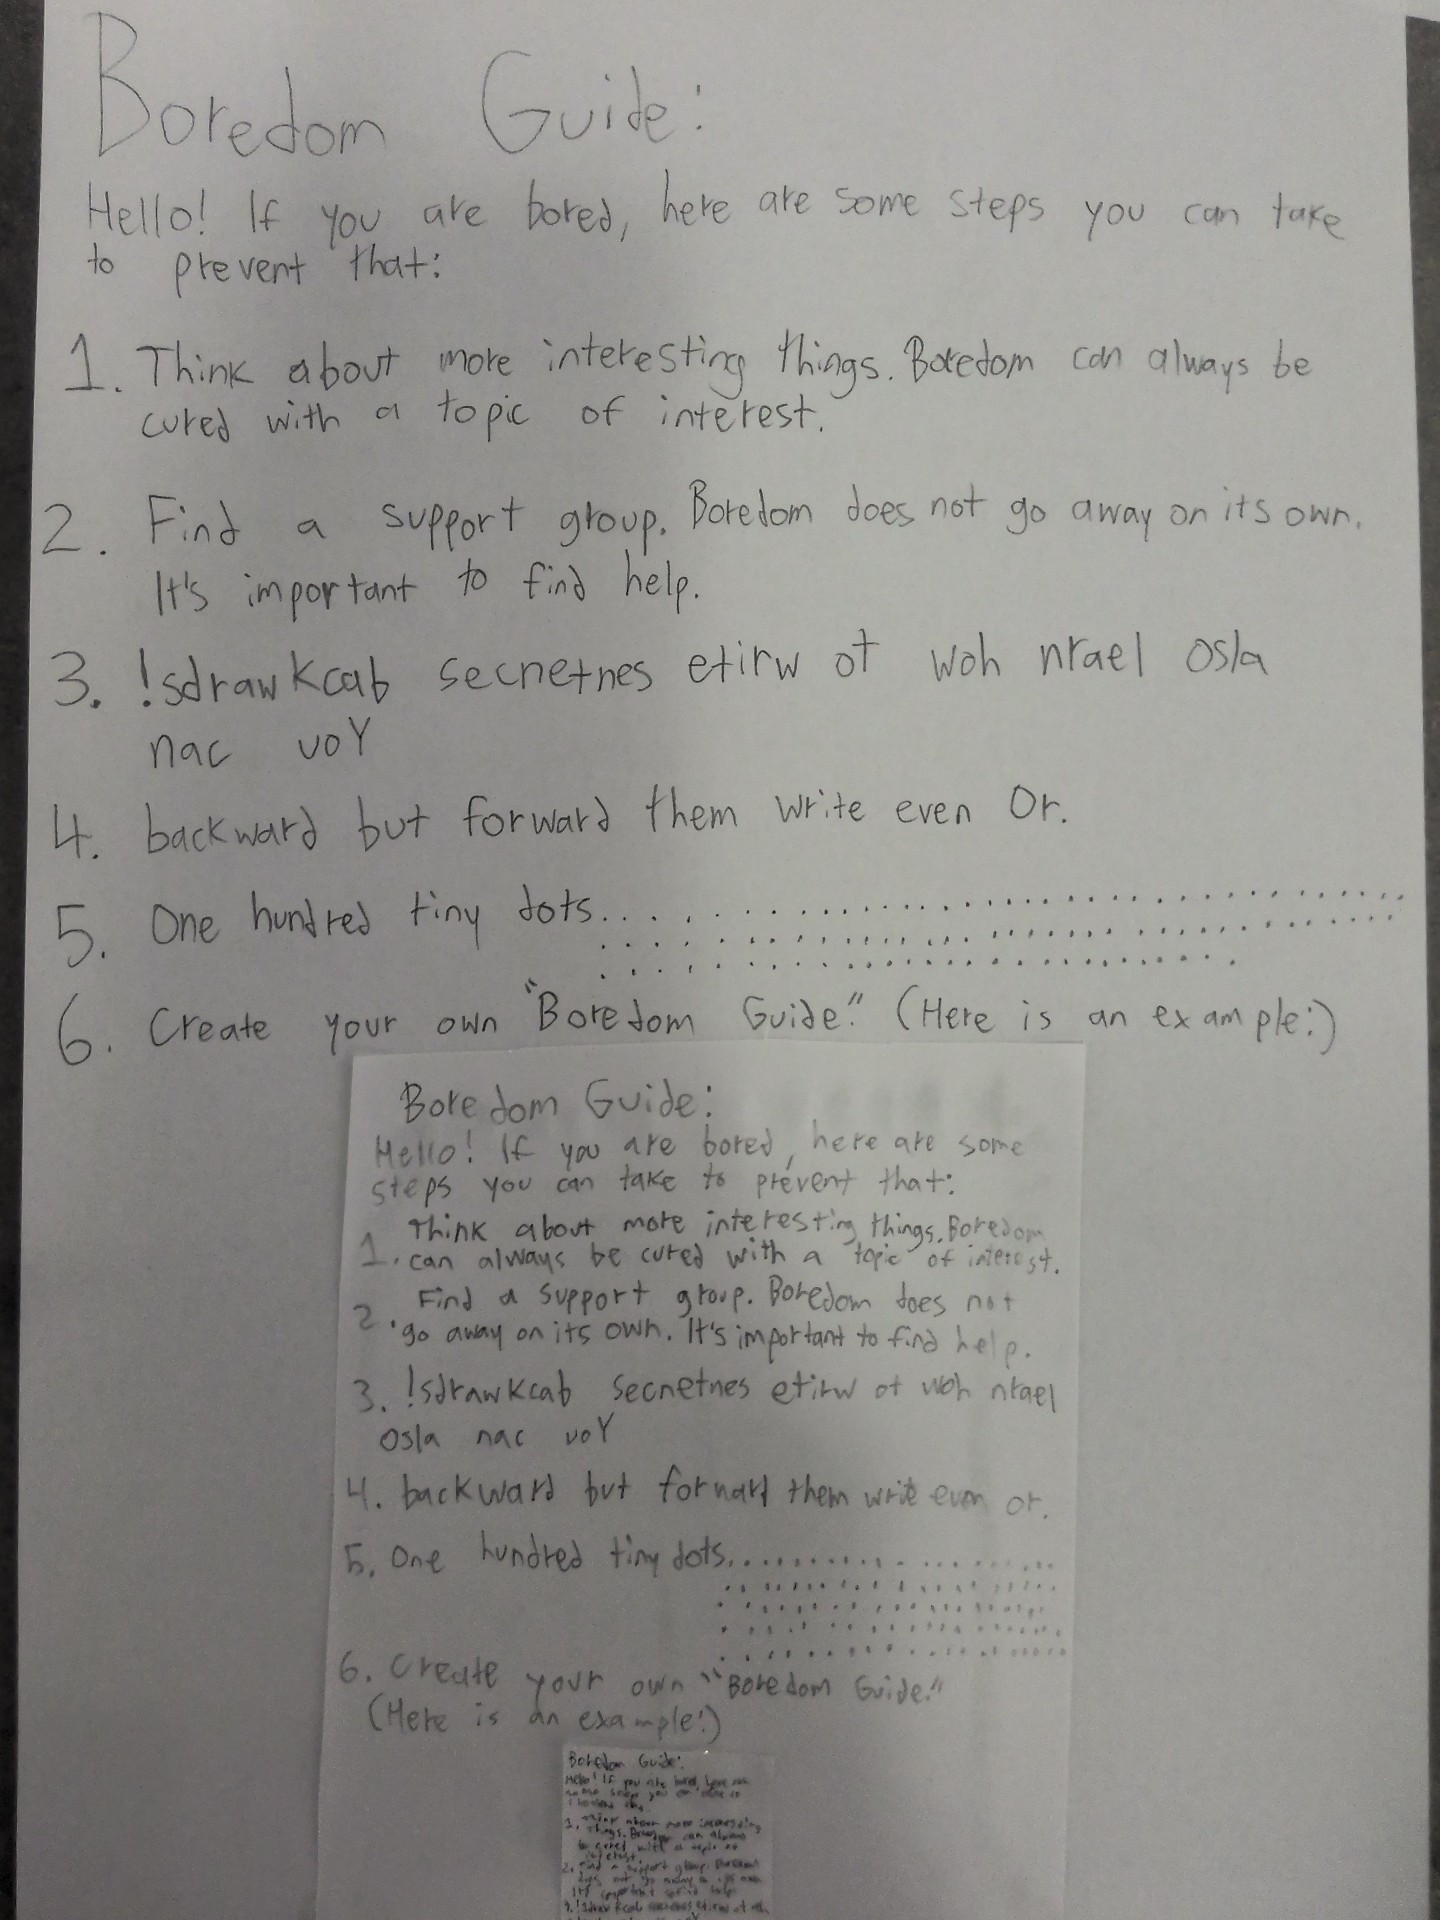 Boredom Guide:
Hello! If you are bored, here are some steps you can take
to prevent that:
1. Think about more interesting things. Boredom can always be
cured with a topic of interest.
2. Find a support group. Boredom does not go away on its own.
It's important to find help.
3. !sdrawkcab secnetnes etirw ot woh nrael osla
nac uoY
4. backward but forward them write even Or.
5. One hundred tiny dots...
6. Create your own "Boredom Guide." (Here is an example:)
Boredom Guide:
Hello! If you are bored, here are some
steps you can take to prevent that:
1. Think about more interesting things. Boredom
can always be cured with a topic of interest.
2. Find a support group. Boredom does not
go away on its own. It's important to find help.
3. !sdrawkcab secnetnes etirw ot woh nrael
osla nac uoY
4. backward but forward them write even or.
5. One hundred tiny dots...
6. Create your own "Boredom Guide."
(Here is an example:)
Boredom Guide:
Hello! If you are bored, here are
some steps you can take to
1. Think about more interesting
things. Boredom can always
be cured with a topic of
interest.
2. Find a support group. Boredom
does not go away on its own
It's important to find help.
3. !sdrawkcab secnetnes etirw ot